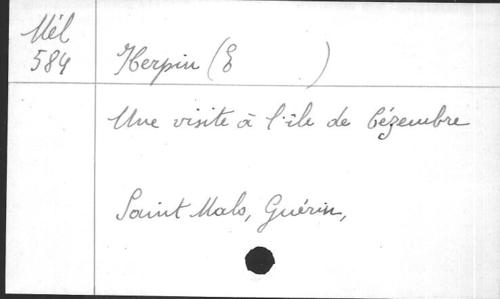 Mél
584
Herpin (E )
Une visite à l'île de Cézembre
Saint Malo, Guérin,